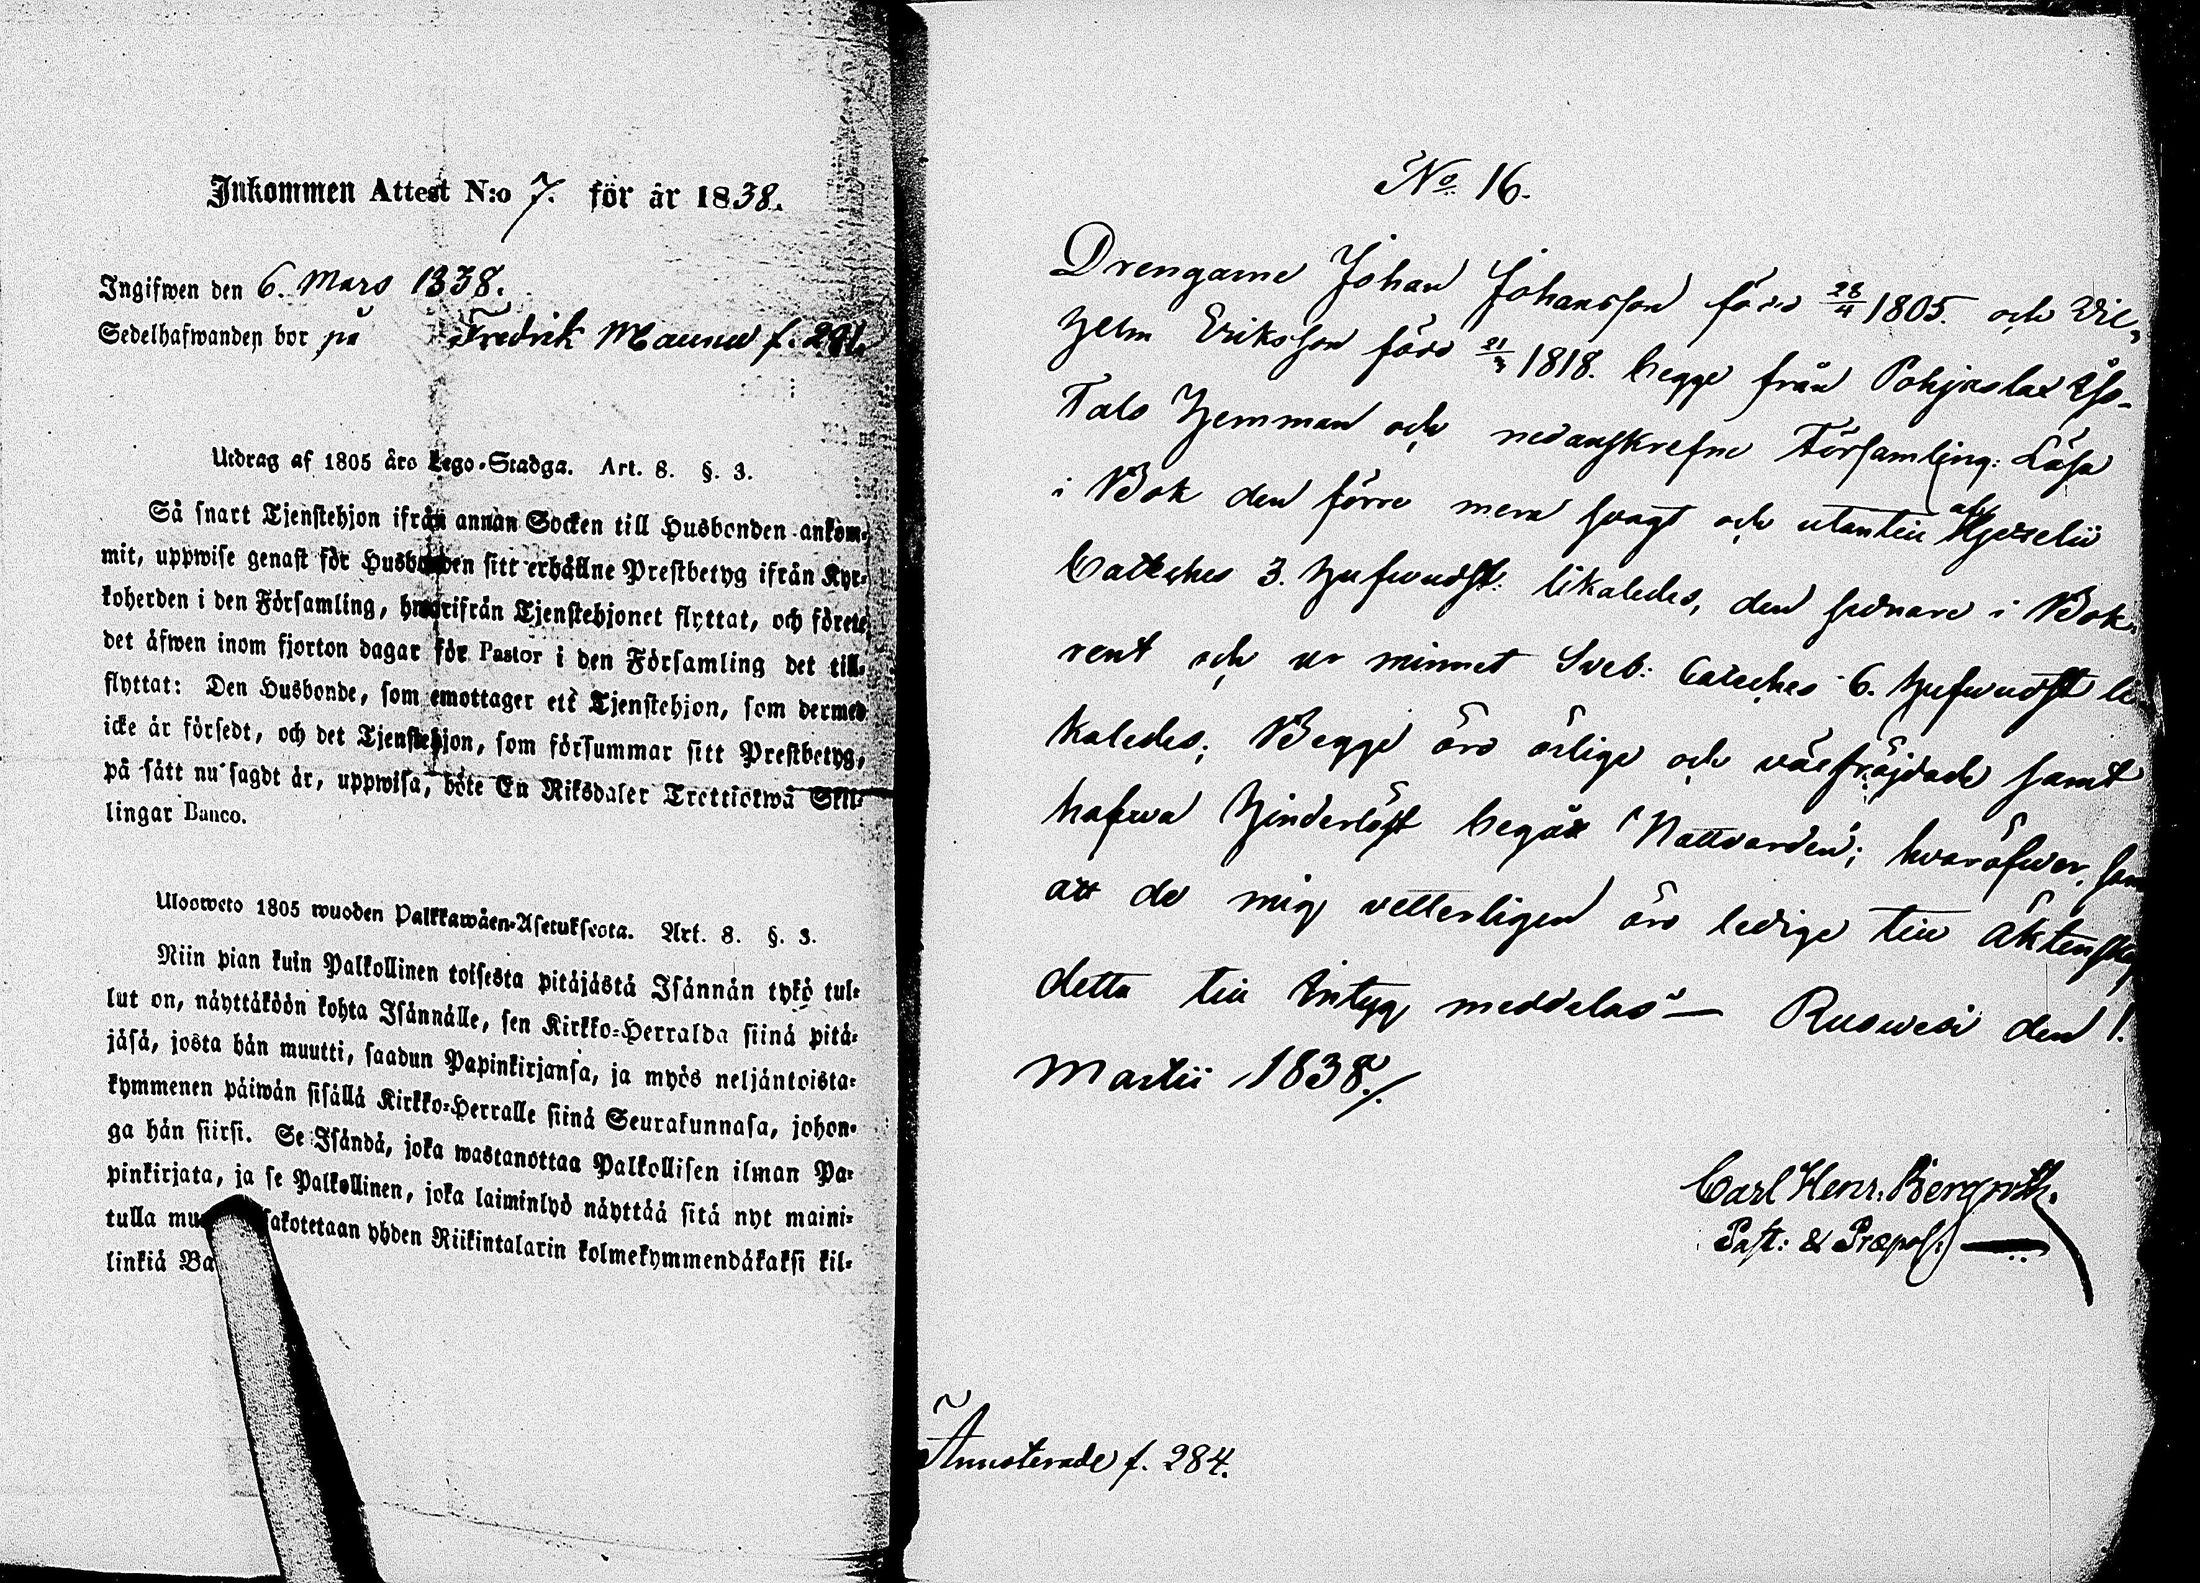 Inkommen Attest N:o 7. för år 1838.
Ingifwen den 6. Mars 1838.
Sedelhafwanden bor på Fredrik Maunu f. 291.
Utdrag af 1805 års Lego-Stadga. Art. 8. §. 3.
Så snart Tjenstehjon ifrån annan Socken till Husbonden ankom-
mit, uppwise genast för Husbonden sitt erhållne Prestbetyg ifrån Kyr-
koherden i den Församling, hwarifrån Tjenstehjonet flyttat, och förete
det äfwen inom fjorton dagar för Pastor i den Församling det till-
flyttat: Den Husbonde, som emottager ett Tjenstehjon, som dermed
icke är försedt, och det Tjenstehjon, som försummar sitt Prestbetyg,
på sätt nu sagdt är, uppwisa, böte En Riksdaler Trettiotwå Skil-
lingar Banco.
Uloosweto 1805 wuoden Palkkawäen-Asetuksesta. Art. 8. §. 3.
Niin pian kuin Palkollinen toisesta pitäjästä Isännän tykö tul-
lut on, näyttäköön kohta Isännälle, sen Kirkko-Herralda siinä pitä-
jäsä, josta hän muutti, saadun Papinkirjansa, ja myös neljäntoista-
kymmenen päiwän sisällä Kirkko-Herralle siinä Seurakunnasa, johon-
ga hän siirsi. Se Isändä, joka wastanottaa Palkollisen ilman Pa-
pinkirjata, ja se Palkollinen, joka laiminlyö näyttää sitä nyt maini-
tulla mu sakotetaan yhden Riikintalarin kolmekymmendäkaksi kil-
linkiä Ba
No 16.
Drengarne Johan Johansson född 28/4 1805. och Vil-
helm Eriksson född 21/3 1818. begge från Pohjaslax
Tals Hemman och nedanskrefne Församling: Läsa
i Bok den förre mera svagt och utantill af Hjerzelii
Cateches 3. Hufvudst: likaledes, den sednare i Bok
rent och ur minnet Sveb: Cateches 6. Hufvudst li-
kaledes; Begge äro ärlige och välfräjdade samt
hafwa Hinderlöst begått Nattvarden; hvaröfwer, sam
att de mig vetterligen äro ledige till Äktenskap
detta till Intyg meddelas — Ruovesi den 1.
Martii 1838./.
Carl Henr: Bergroth.
Past: & Præpos:
Annoterade f. 284.